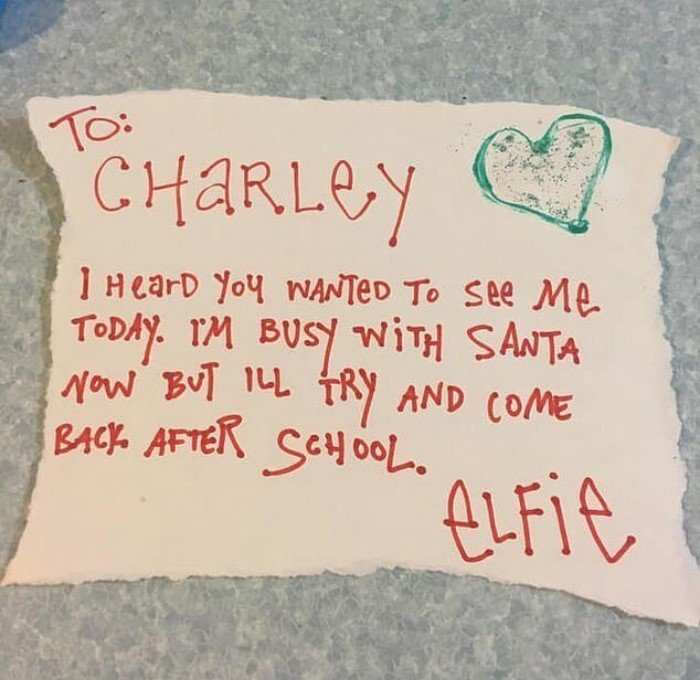 TO:
CHaRLey
I HearD you WANTeD To see Me
ToDAY. I'M BUSY WiTH SANTA
NOW BUT ILL TRY AND COME
BACK AFTER SCHOOL.
eLFie